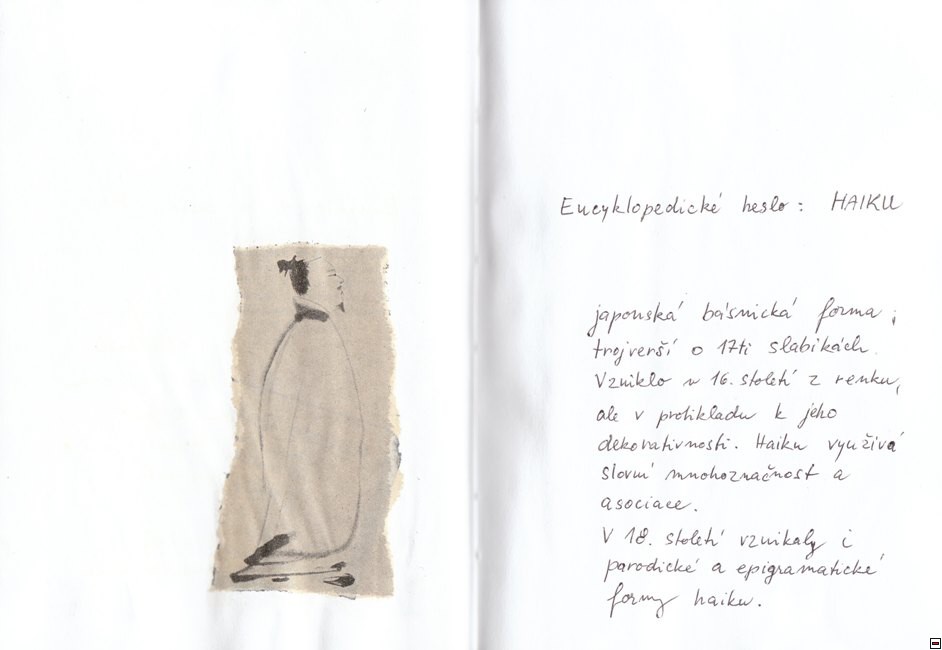 Encyklopedické heslo: HAIKU
japonská básnická forma;
trojverší o 17ti slabikách.
Vzniklo v 16. století z renku,
ale v protikladu k jeho
dekorativnosti. Haiku využívá
slovní mnohoznačnost a
asociace.
V 18. století vznikaly i
parodické a epigramatické
formy haiku.